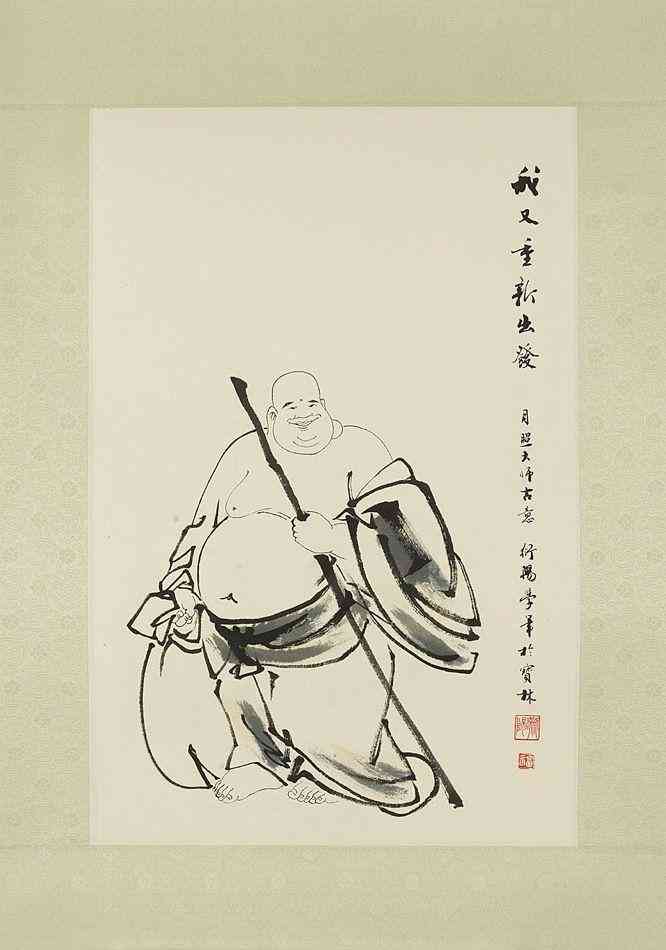 我又重新出發
月照大师古意 衍楊學筆於寶林